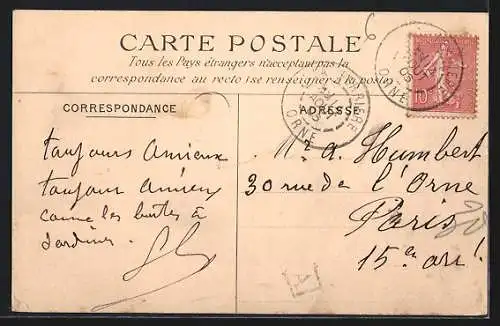 CARTE POSTALE
Tous les Pays étrangers n'acceptant pas la
correspondance au recto (se renseigner à la poste)
CORRESPONDANCE
ADRESSE
ORNE
ORNE
10
toujours Amieux
toujours Amieux
come les boîtes à
Sardines.
Mr a. Humbert
30 rue de l'Orne
Paris
15e arr!
6